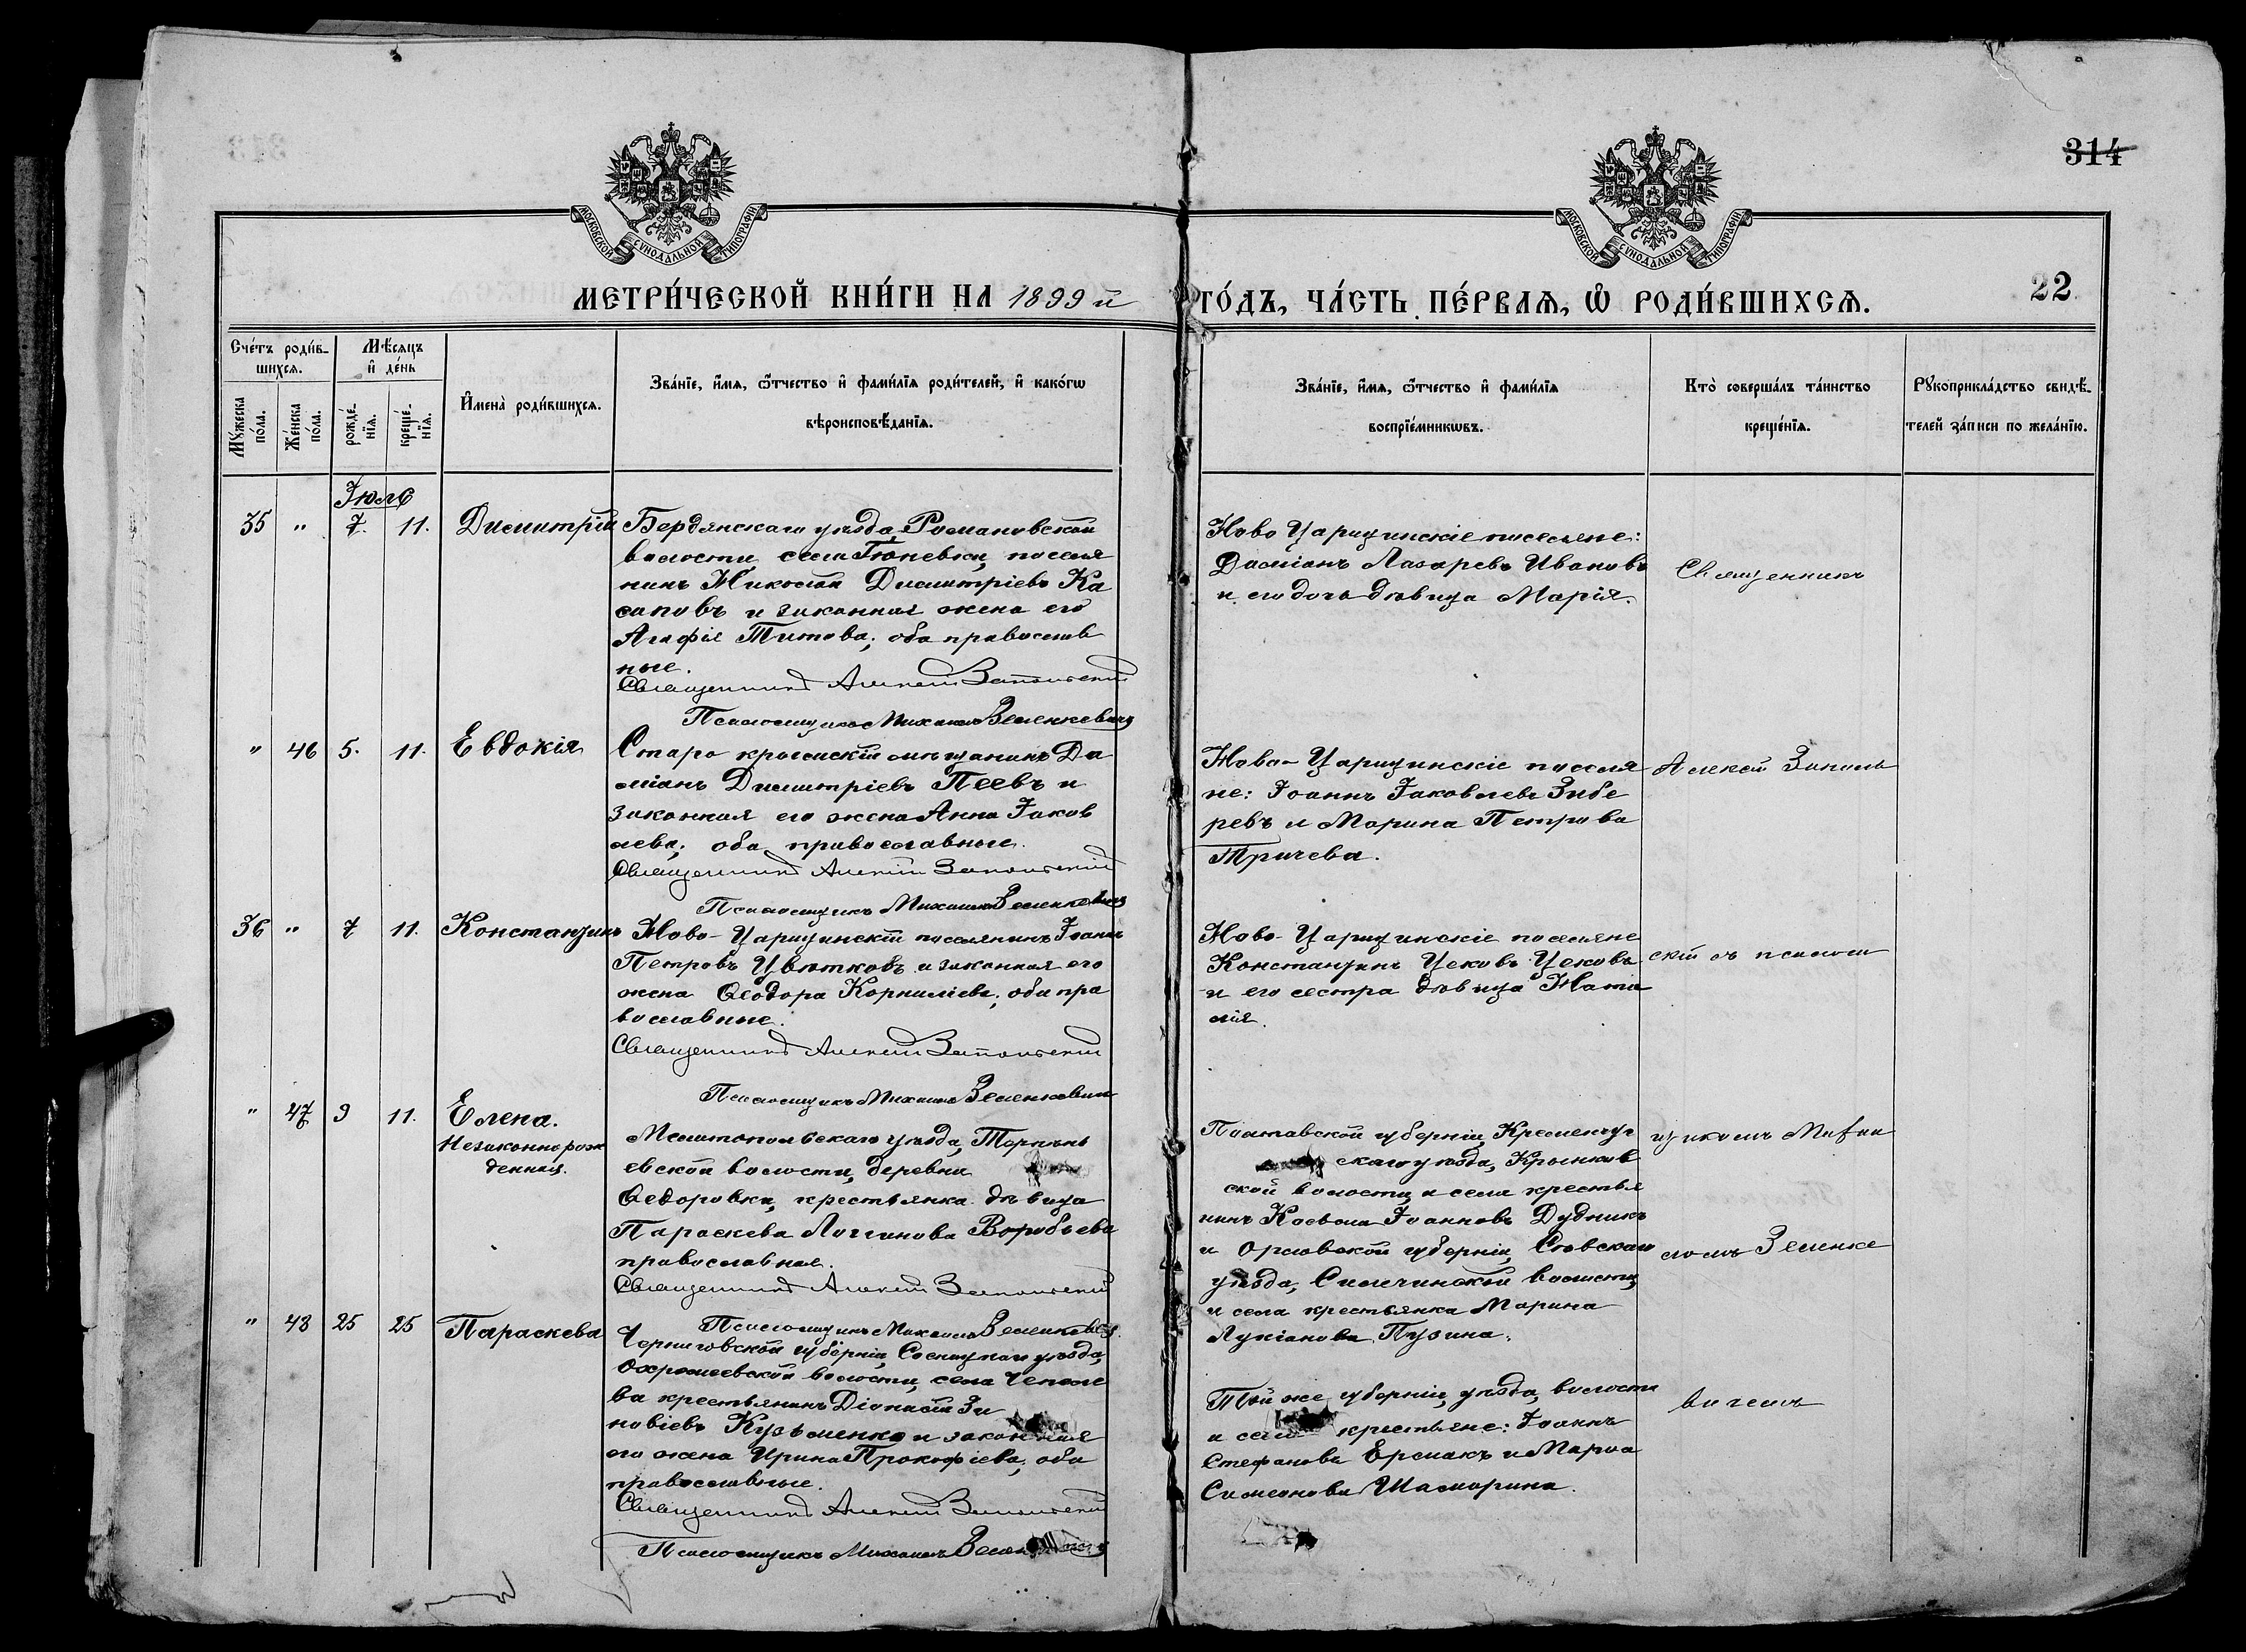 314
МОСКОВСКОЙ СУНОДАЛЬНОЙ ТИПОГРАФІИ
МОСКОВСКОЙ СУНОДАЛЬНОЙ ТИПОГРАФІИ
МЕТРИ́ЧЕСКОЙ КНИ́ГИ НА 1899 й ГО́ДЪ, ЧА́СТЬ ПЕ́РВАѦ, Ѡ РОДИ́ВШИХСѦ.
22
Сче́тъ роди́в-
шихсѧ.
Мѣ́сѧцъ
и҆ де́нь
Мꙋ́жеска по́ла.
Же́нска по́ла.
рожде́-нїѧ.
креще́-нїѧ.
И҆мена̀ роди́вшихсѧ.
Зва́нїе, и҆́мѧ, ѻ҆́тчество и҆ фами́лїѧ роди́телей, и҆ како́гѡ
вѣроисповѣ́данїѧ.
Зва́нїе, и҆́мѧ, ѻ҆́тчество и҆ фами́лїѧ
воспрїе́мникѡвъ.
Кто̀ соверша́лъ та́инство
креще́нїѧ.
Рꙋкоприкла́дство свидѣ́-
телей за́писи по жела́нїю.
Іюль
35 " 7. 11. Димитрій
Бердянскаго уѣзда, Романовской
волости села Гюневки, поселя
нинъ Николай Димитріевъ Ка
саповъ и законная жена его
Агафія Титова; оба православ
ные.
Священникъ Алексій Запольскій
Псаломщикъ Михаилъ Зеленкевичъ
Ново Царицинскіе поселяне:
Даміанъ Лазаревъ Ивановъ
и его дочь дѣвица Марія.
Священникъ
" 46 5. 11. Евдокія
Старо крымскій мѣщанинъ Да
міанъ Димитріевъ Пеевъ и
законная его жена Анна Іаков
лева; оба православные.
Священникъ Алексій Запольскій
Псаломщикъ Михаилъ Зеленкевичъ
Ново-Царицинскіе поселя
не: Іоаннъ Іаковлевъ Зибе
ревъ и Марина Петрова
Тричева.
Алексій Заполь
36 " 7 11. Константинъ
Ново-Царицинскій поселянинъ Іоаннъ
Петровъ Цвѣтковъ и законная его
жена Ѳеодора Корниліева; оба пра
вославные.
Священникъ Алексій Запольскій
Псаломщикъ Михаилъ Зеленкевичъ
Ново-Царицинскіе поселяне
Константинъ Цековъ Цековъ
и его сестра дѣвица Ната
лія.
скій съ псалом
" 47 9 11. Елена.
Незаконнорож
денная.
Мелитопольскаго уѣзда, Терпѣнь
евской волости, деревни
Ѳедоровки, крестьянка дѣвица
Параскева Логгинова Воробьева
православная.
Священникъ Алексій Запольскій
Псаломщикъ Михаилъ Зеленкевичъ
Полтавской губерніи, Кременчуг
скаго уѣзда, Крынков
ской волости и села крестья
нинъ Іоанновъ Дудникъ
и Орловской губерніи, Сѣвскаго
уѣзда, волости
и села крестьянка Марина
Лукіанова Пузина.
щикомъ Михаи
ломъ Зеленке
" 48 25 25 Параскева
Черниговской губерніи, Сосницкаго уѣзда,
Охромеевской волости, села
ва крестьянинъ Діонисій Зи
новіевъ Кузьменко и законная
его жена Ирина Прокофіева; оба
православные.
Священникъ Алексій Запольскій
Псаломщикъ Михаилъ
Той же губерніи, уѣзда, волости
и села крестьяне: Іоаннъ
Стефановъ Ермакъ и Марѳа
Симеонова Шамарина.
вичемъ